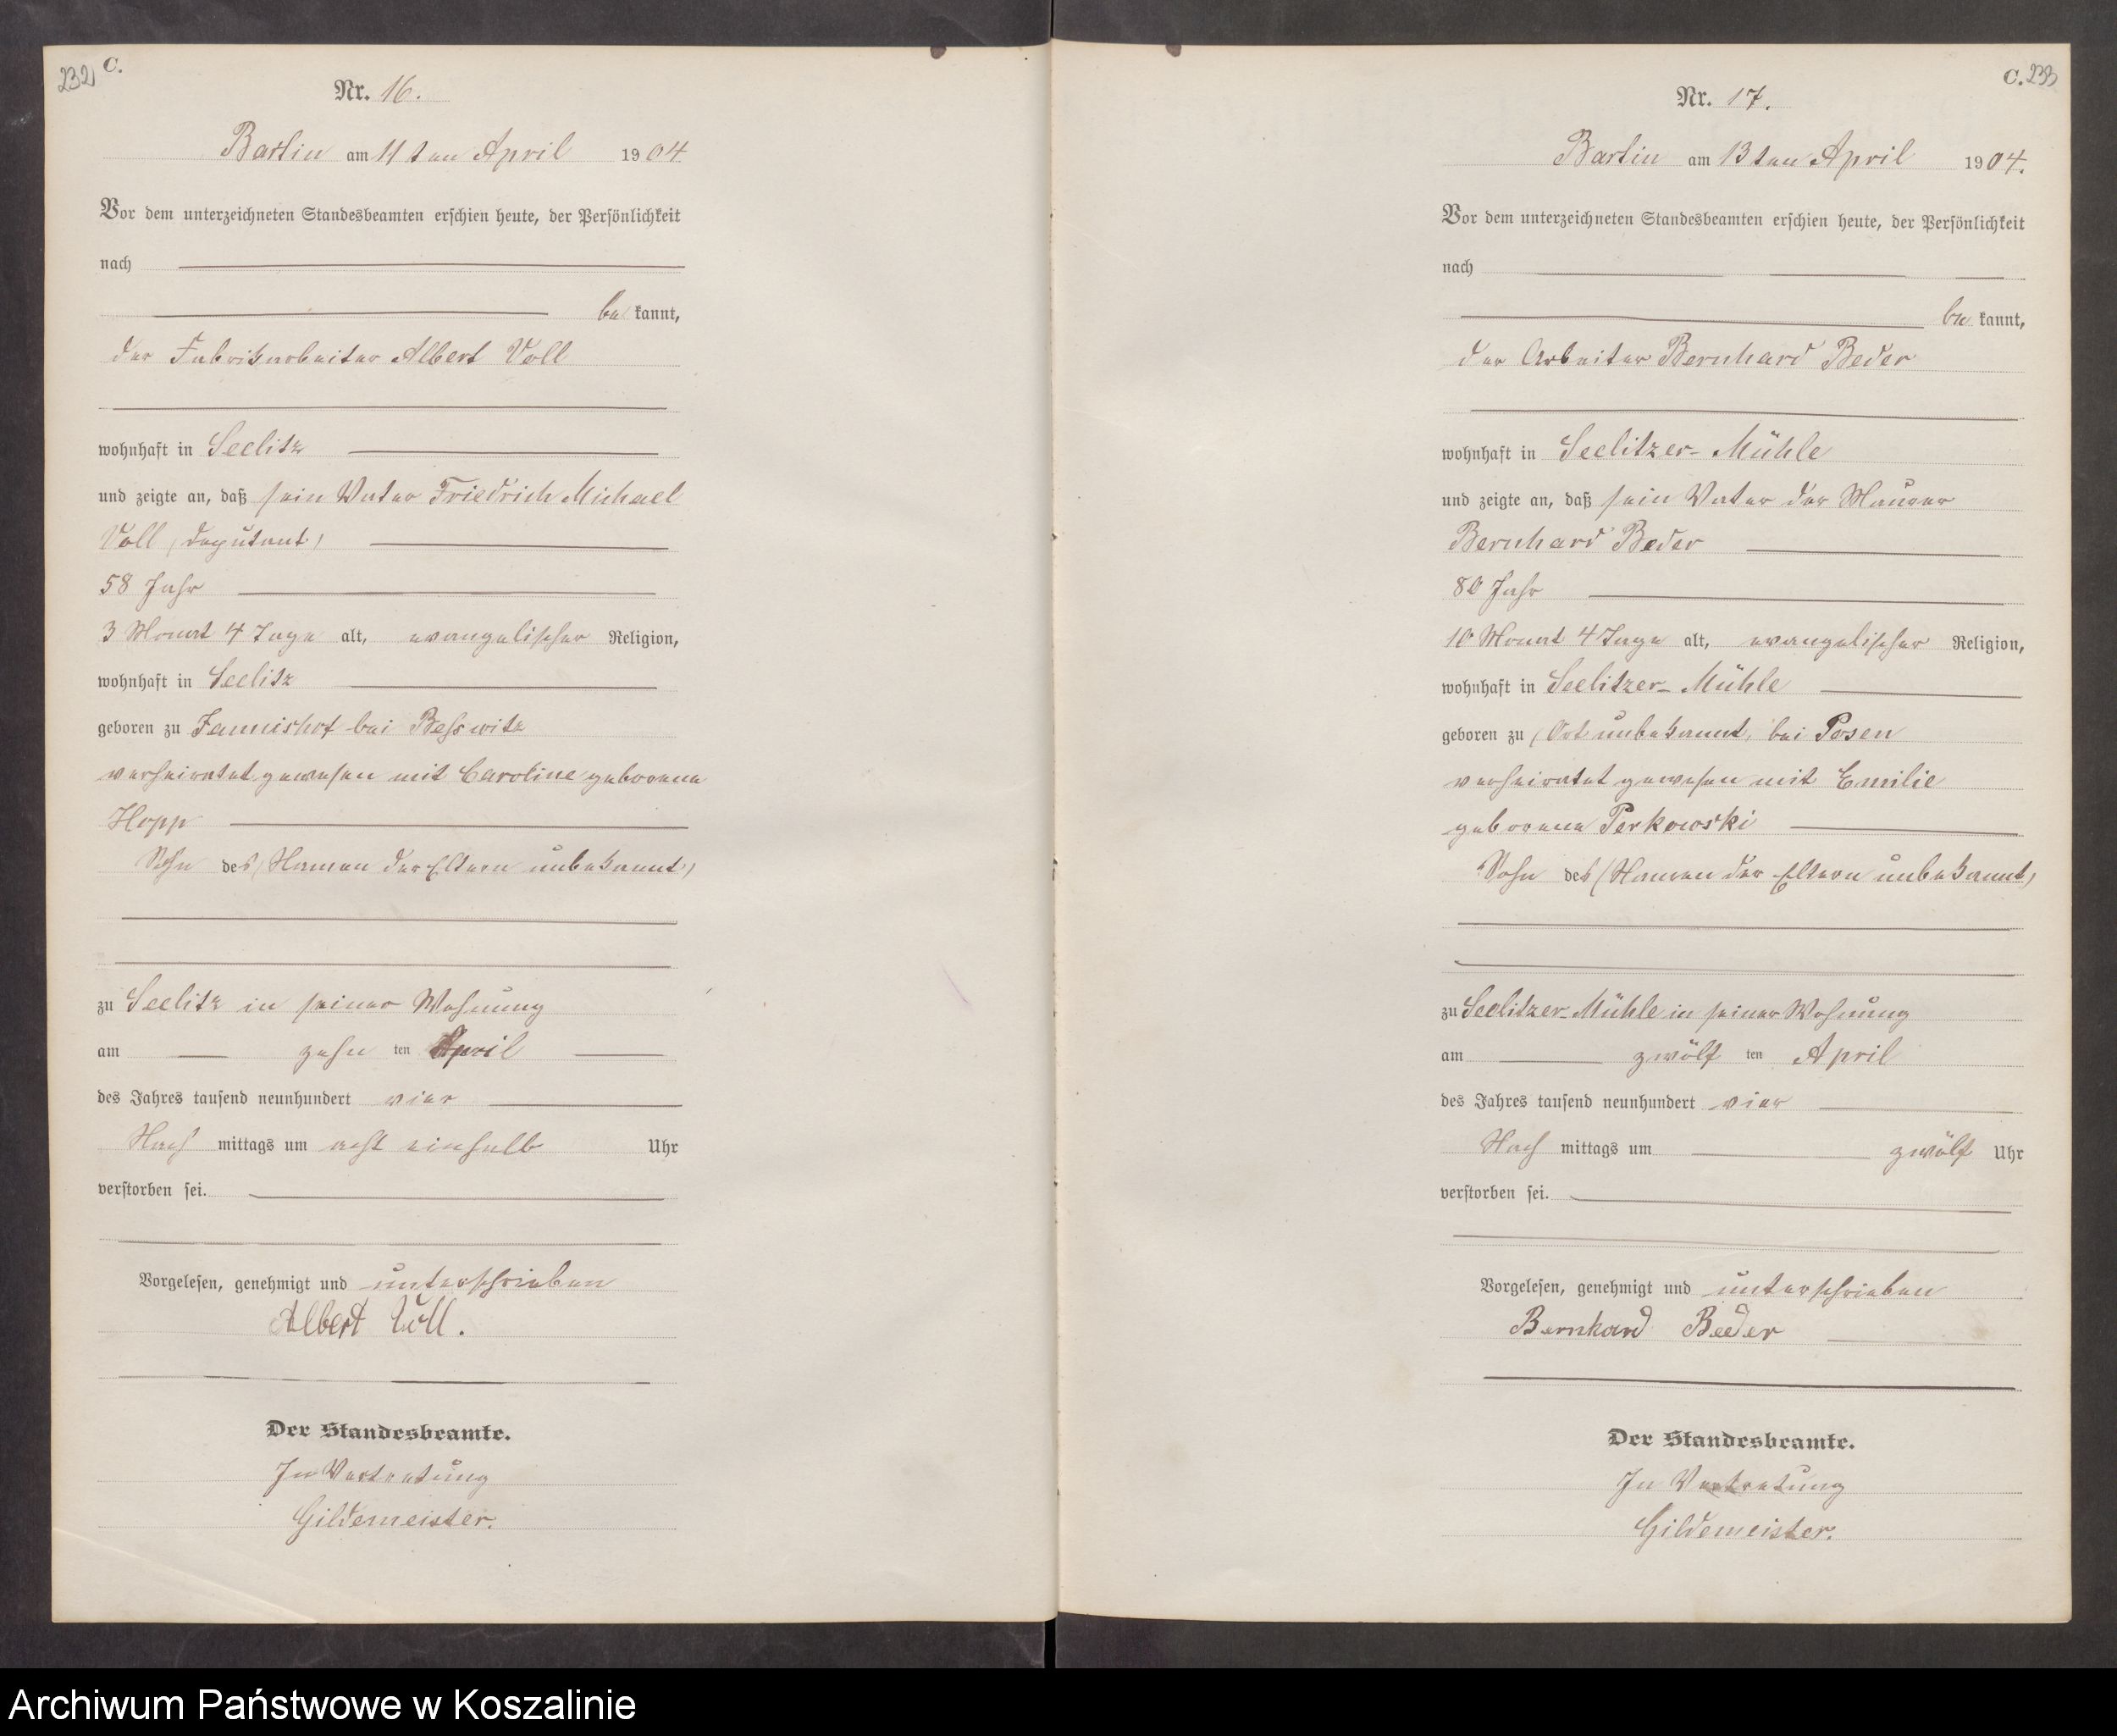 232 C.
Nr. 16.
Bartin am 11ten April 1904
Vor dem unterzeichneten Standesbeamten erschien heute, der Persönlichkeit
nach
be kannt,
der Fabrikarbeiter Albert Voll
wohnhaft in Seelitz
und zeigte an, daß sein Vater Friedrich Michael
Voll (Deputant)
58 Jahr
3 Monat 4 Tage alt, evangelischer Religion,
wohnhaft in Seelitz
geboren zu Jannishof bei Besswitz
verheiratet gewesen mit Caroline geborene
Hopp
Sohn des (Namen der Eltern unbekannt)
zu Seelitz in seiner Wohnung
am zehn ten April
des Jahres tausend neunhundert vier
Nach mittags um acht einhalb Uhr
verstorben sei.
Vorgelesen, genehmigt und unterschrieben
Albert Voll.
Der Standesbeamte.
In Vertretung
Gildemeister.
C. 233
Nr. 17.
Bartin am 13ten April 1904.
Vor dem unterzeichneten Standesbeamten erschien heute, der Persönlichkeit
nach
be kannt,
der Arbeiter Bernhard Beder
wohnhaft in Seelitzer-Mühle
und zeigte an, daß sein Vater der Maurer
Bernhard Beder
80 Jahr
10 Monat 4 Tage alt, evangelischer Religion,
wohnhaft in Seelitzer-Mühle
geboren zu (Ort unbekannt) bei Posen
verheiratet gewesen mit Emilie
geborene Perkowski
Sohn des (Namen der Eltern unbekannt)
zu Seelitzer-Mühle in seiner Wohnung
am zwölf ten April
des Jahres tausend neunhundert vier
Nach mittags um zwölf Uhr
verstorben sei.
Vorgelesen, genehmigt und unterschrieben
Bernhard Beder
Der Standesbeamte.
In Vertretung
Gildemeister.
Archiwum Państwowe w Koszalinie